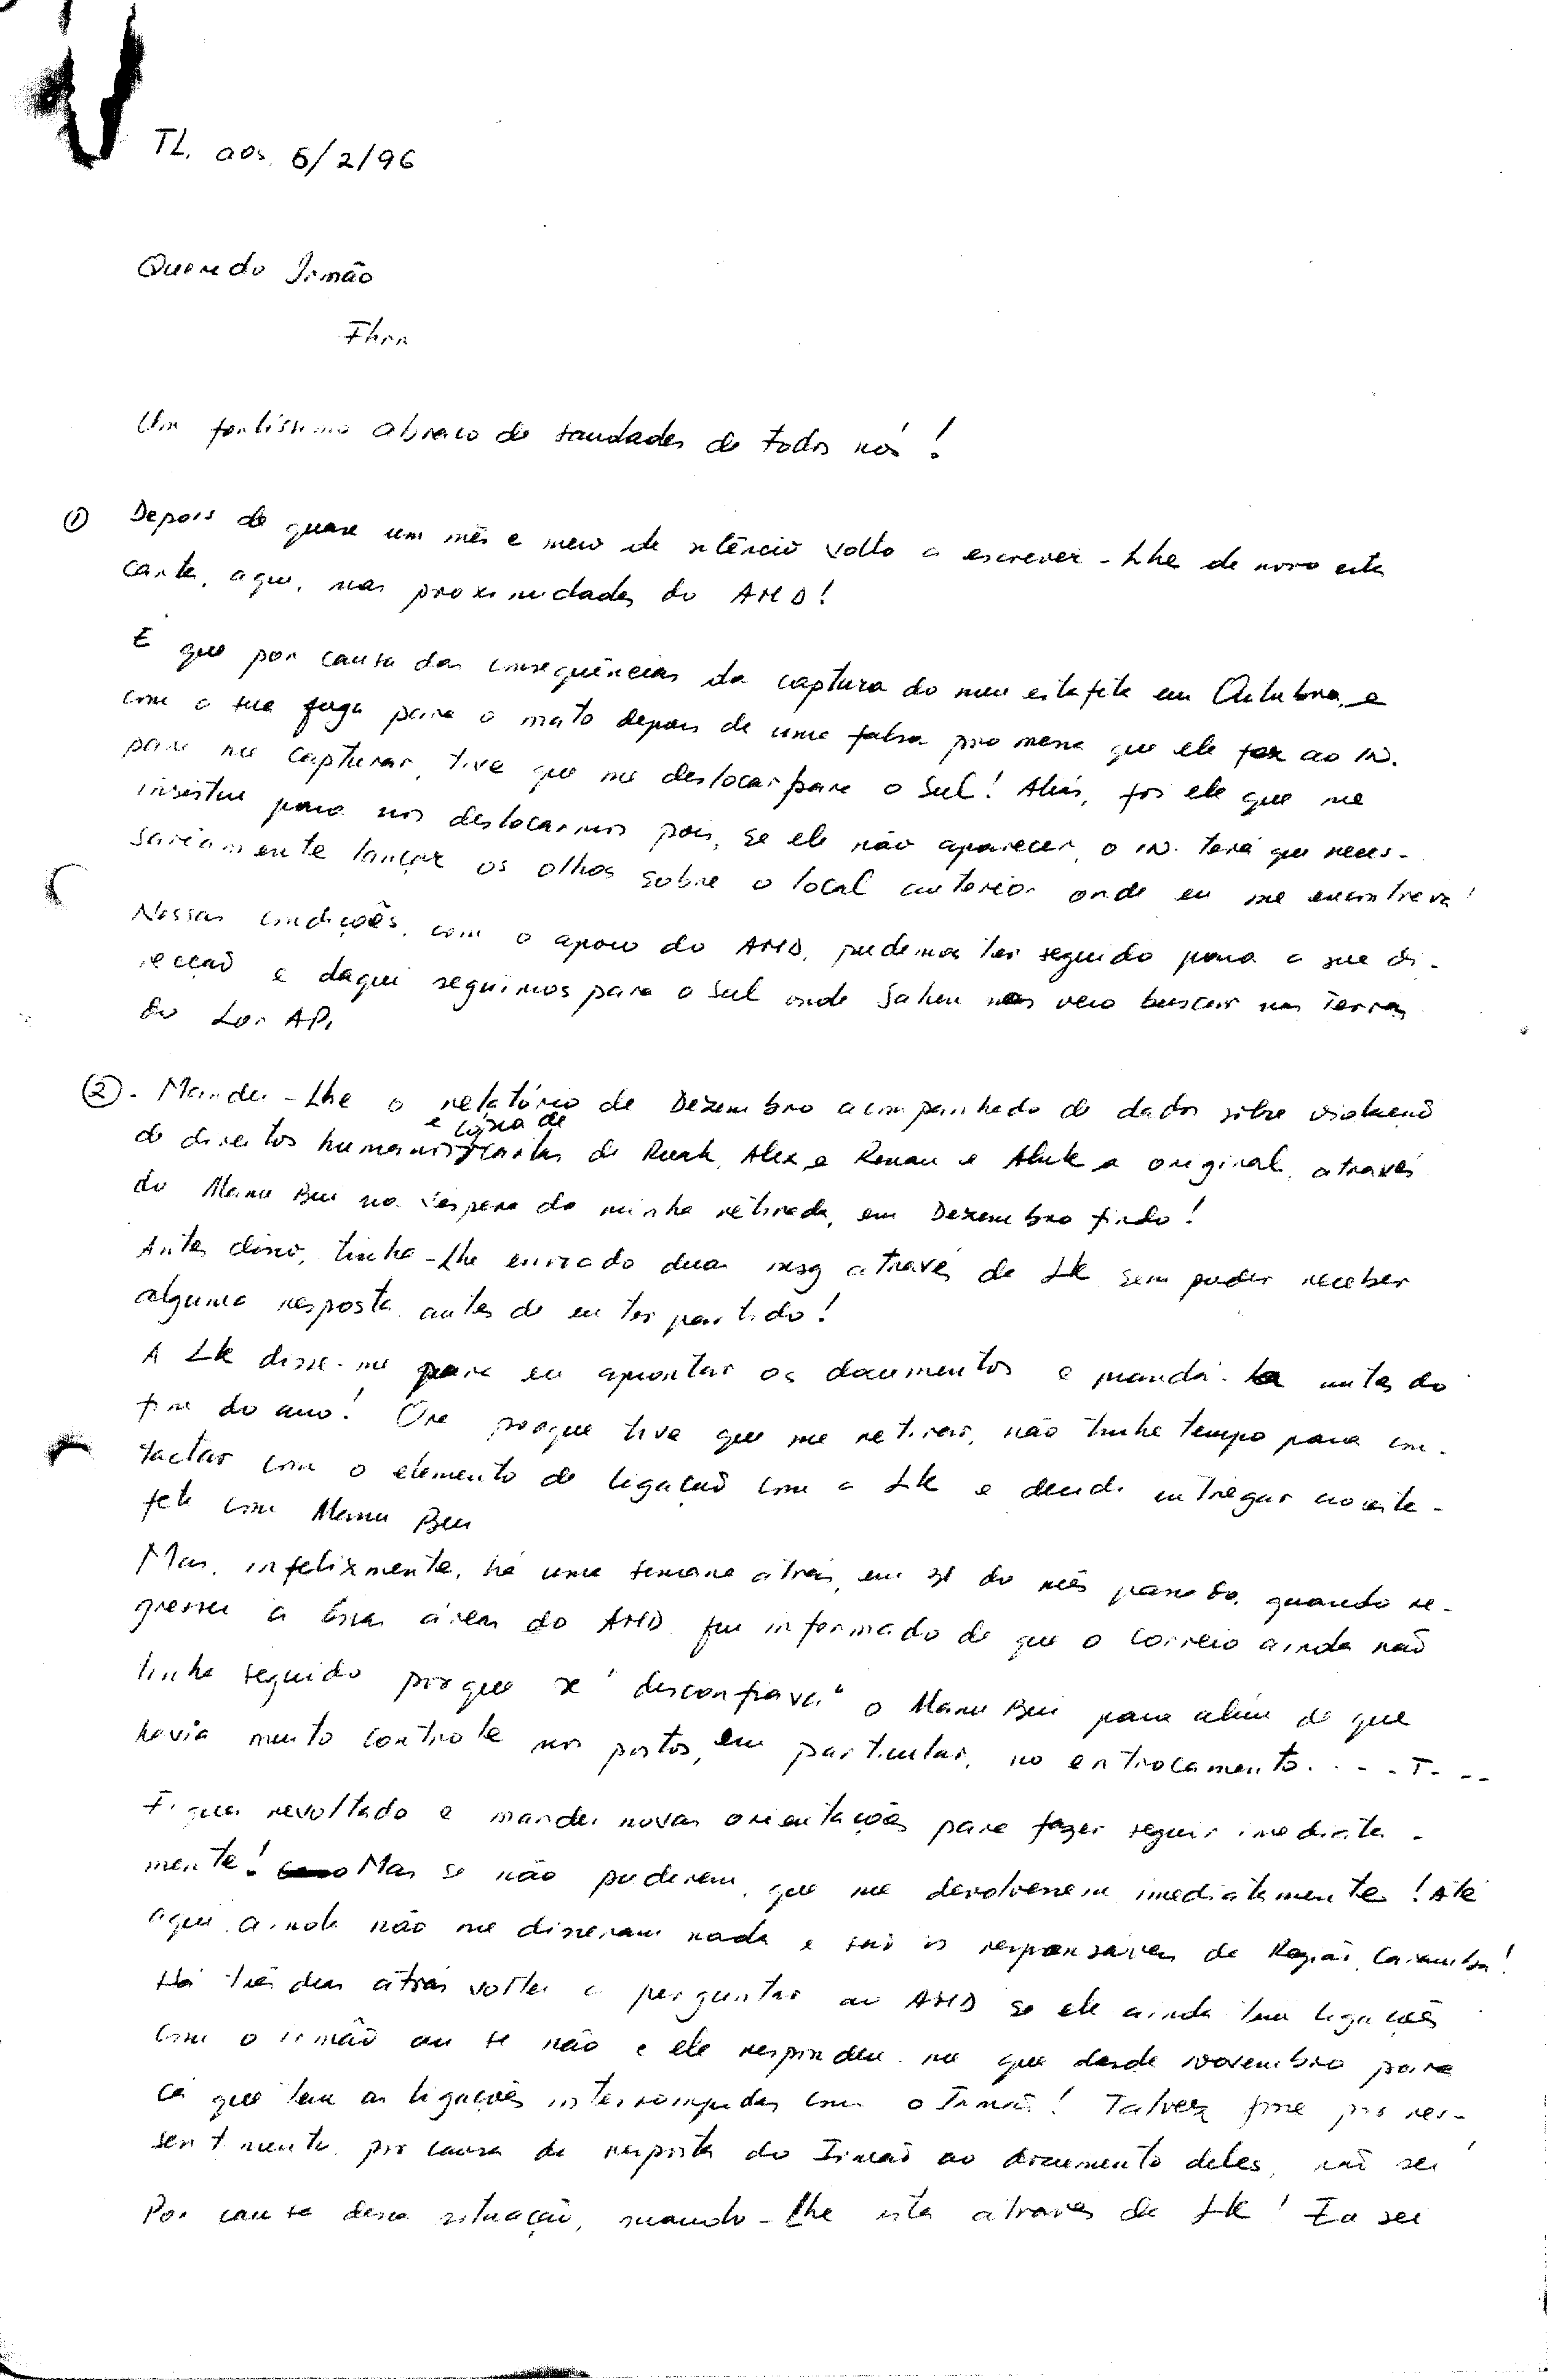 TL, aos, 6/2/96
Querido Irmão
Um fortíssimo abraço de saudades de todos nós!
① Depois de quase um mês e meio de silêncio volto a escrever-Lhe de novo esta
carta, aqui, nas proximidades do AMD!
É que por causa das consequências da captura do meu estafeta em Outubro, e
com a sua fuga para o mato depois de uma falsa promessa que ele fez ao IN.
para me capturar, tive que me deslocar para o Sul! Aliás, foi ele que me
insistiu para nos deslocarmos pois, se ele não aparecer, o IN. terá que neces-
sariamente lançar os olhos sobre o local anterior onde eu me encontrava!
Nessas condições, com o apoio do AMD, pudemos ter seguido para a sua di-
recção e daqui seguimos para o Sul onde Sahen nos veio buscar nas terras
do Lor AP,
②. Mandei-Lhe o relatório de Dezembro acompanhado de dados sôbre violação
e cópia de
de direitos humanos cartas de Ruak, Alex e Renan e Aluk a original, através
do Manu Bui na véspera da minha retirada, em Dezembro findo!
Antes disso, tinha-Lhe enviado duas msg através da LK sem poder receber
alguma resposta antes de eu ter partido!
A LK disse-me para eu aprontar os documentos e mandá-la antes do
fim do ano! Ora porque tive que me retirar, não tinha tempo para con-
tactar com o elemento de ligação com a LK e decidi entregar ao esta-
feta com Manu Bui
Mas, infelizmente, há uma semana atrás, em 31 do mês passado, quando re-
gressei à essas áreas do AMD fui informado de que o correio ainda não
tinha seguido porque se "desconfiava" o Manu Bui para além de que
havia muito controle nos postos, em particular, no entrocamento. . . . T. . .
Fiquei revoltado e mandei novas orientações para fazer seguir imediata-
mente! Mas se não puderem, que me devolvessem imediatamente! Até
aqui ainda não me disseram nada e são os responsáveis da Região, Caramba!
Há três dias atrás voltei a perguntar ao AMD se ele ainda tem ligações
com o irmão ou se não e ele respondeu-me que desde Novembro para
cá que tem as ligações interrompidas com o Irmão! Talvez fosse por res-
sentimento por causa da resposta do Irmão ao documento deles, não sei!
Por causa dessa situação, mando-Lhe esta através da LK! Eu sei